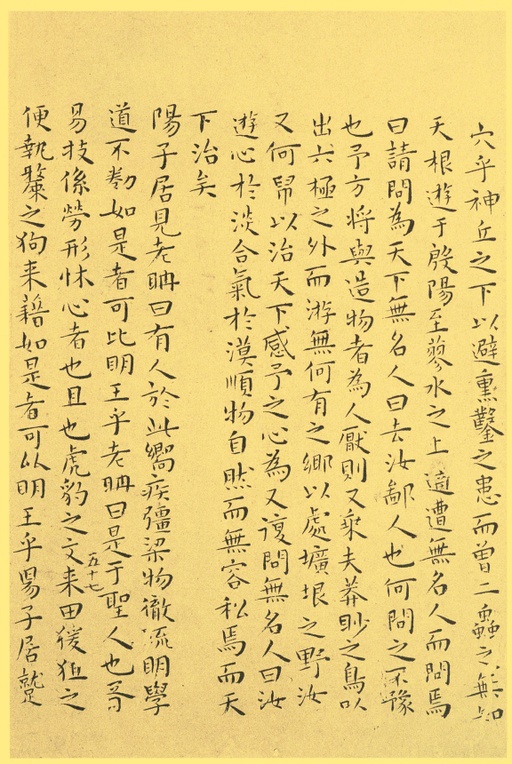 穴乎神丘之下以避熏鑿之患而曾二蟲之無知
天根遊于殷陽至蓼水之上適遭無名人而問焉
曰請問為天下無名人曰去汝鄙人也何問之不豫
也予方將與造物者為人厭則又乘夫莽眇之鳥以
出六極之外而游無何有之鄉以處壙垠之野汝
又何帠以治天下感予之心為又復問無名人曰汝
遊心於淡合氣於漠順物自然而無容私焉而天
下治矣
陽子居見老聃曰有人於此嚮疾彊梁物徹流明學
道不勌如是者可比明王乎老聃曰是于聖人也胥
易技係勞形怵心者也且也虎豹之文来田猨狙之
五十七
便執斄之狗来藉如是者可以明王乎陽子居蹵